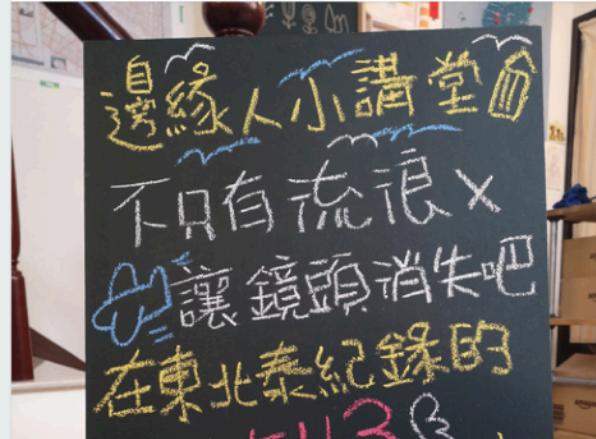 邊緣人小講堂
不只有流浪 X
讓鏡頭消失吧
在東北泰紀錄的